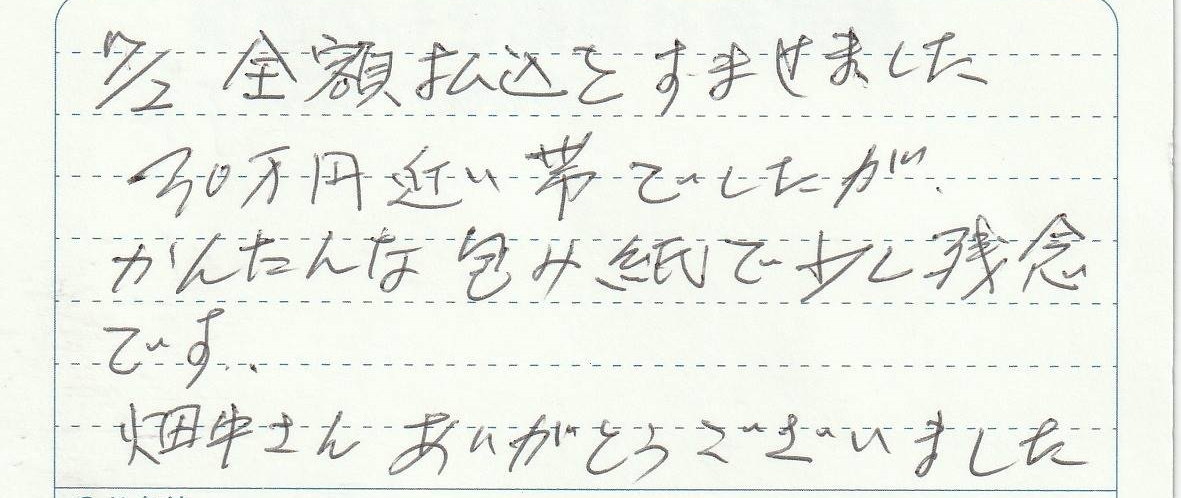 7/2 全額払込をすませました
30万円近い帯でしたが、
かんたんな包み紙で少し残念
です。
畑中さんありがとうございました